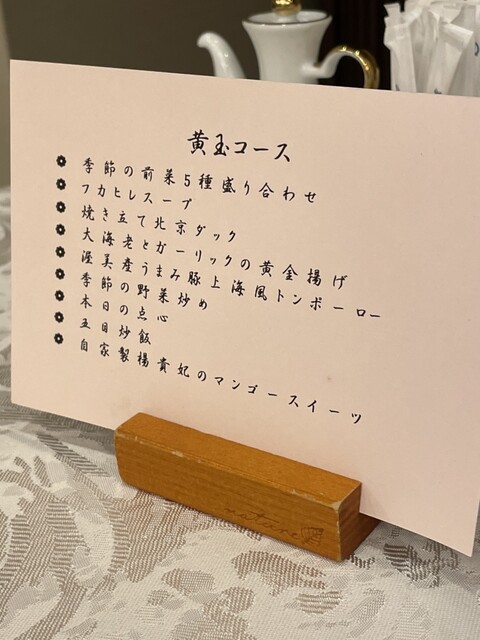 黄玉コース
季節の前菜5種盛り合わせ
フカヒレスープ
焼き立て北京ダック
大海老とガーリックの黄金揚げ
渥美産うまみ豚上海風トンポーロー
季節の野菜炒め
本日の点心
五目炒飯
自家製楊貴妃のマンゴースイーツ
nature